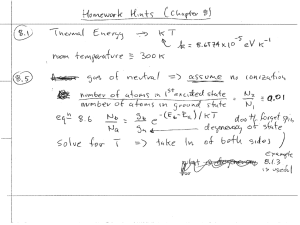 Homework Hints (Chapter 8)
8.1 Thermal Energy → kT
k = 8.6174 × 10⁻⁵ eV K⁻¹
room temperature ≅ 300 K
8.5 gas of neutral => assume no ionization
number of atoms in 1st excited state / number of atoms in ground state = N₂ / N₁ = 0.01
eqⁿ 8.6 N_b / N_a = g_b / g_a e^-(E_b-E_a)/kT don't forget g's
degeneracy of state
solve for T => take ln of both sides
example
8.1.3
is useful